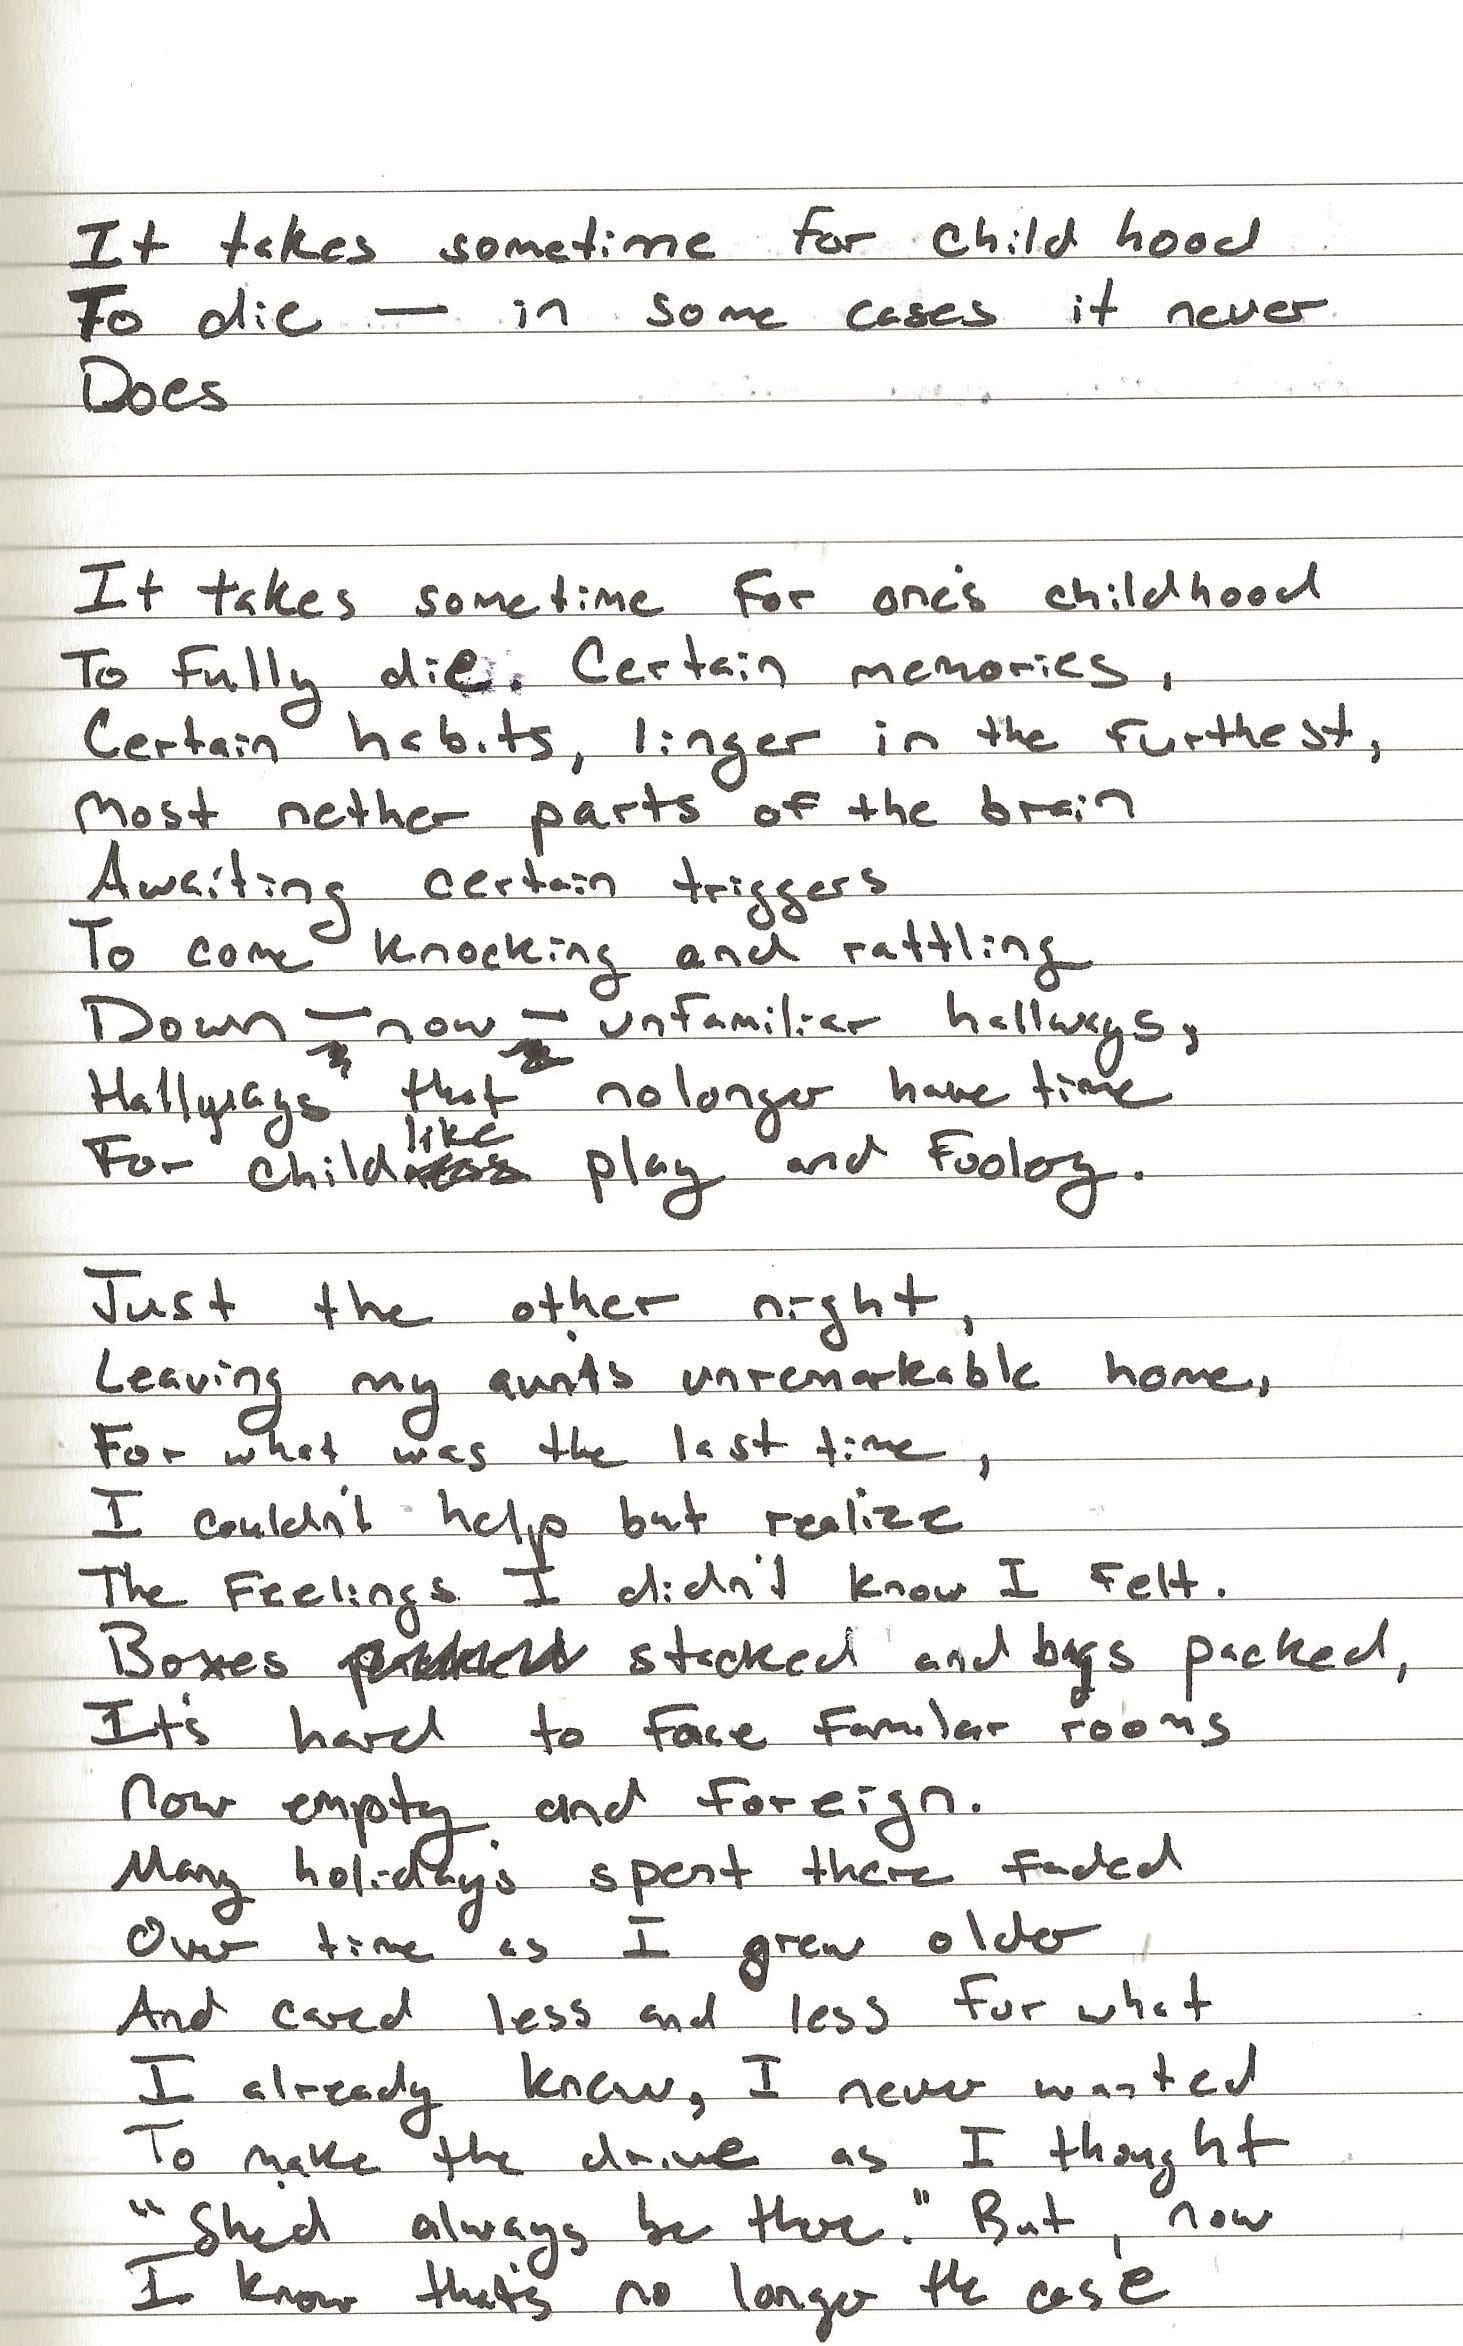 It takes sometime for child hood
To die — in some cases it never
Does
It takes sometime for one's childhood
To fully die. Certain memories,
Certain habits, linger in the furthest,
Most nether parts of the brain
Awaiting certain triggers
To come knocking and rattling
Down — now — unfamiliar hallways,
Hallways that no longer have time
For childlike play and
Just the other night,
Leaving my aunt's unremarkable home,
For what was the last time,
I couldn't help but realize
The Feelings I didn't know I felt.
Boxes stacked and bags packed,
It's hard to face familar rooms
Now empty and foreign.
Many holiday's spent there faded
Over time as I grew older
And cared less and less for what
I already knew, I never wanted
To make the drive as I thought
"She'd always be there." But, now
I know that's no longer the case